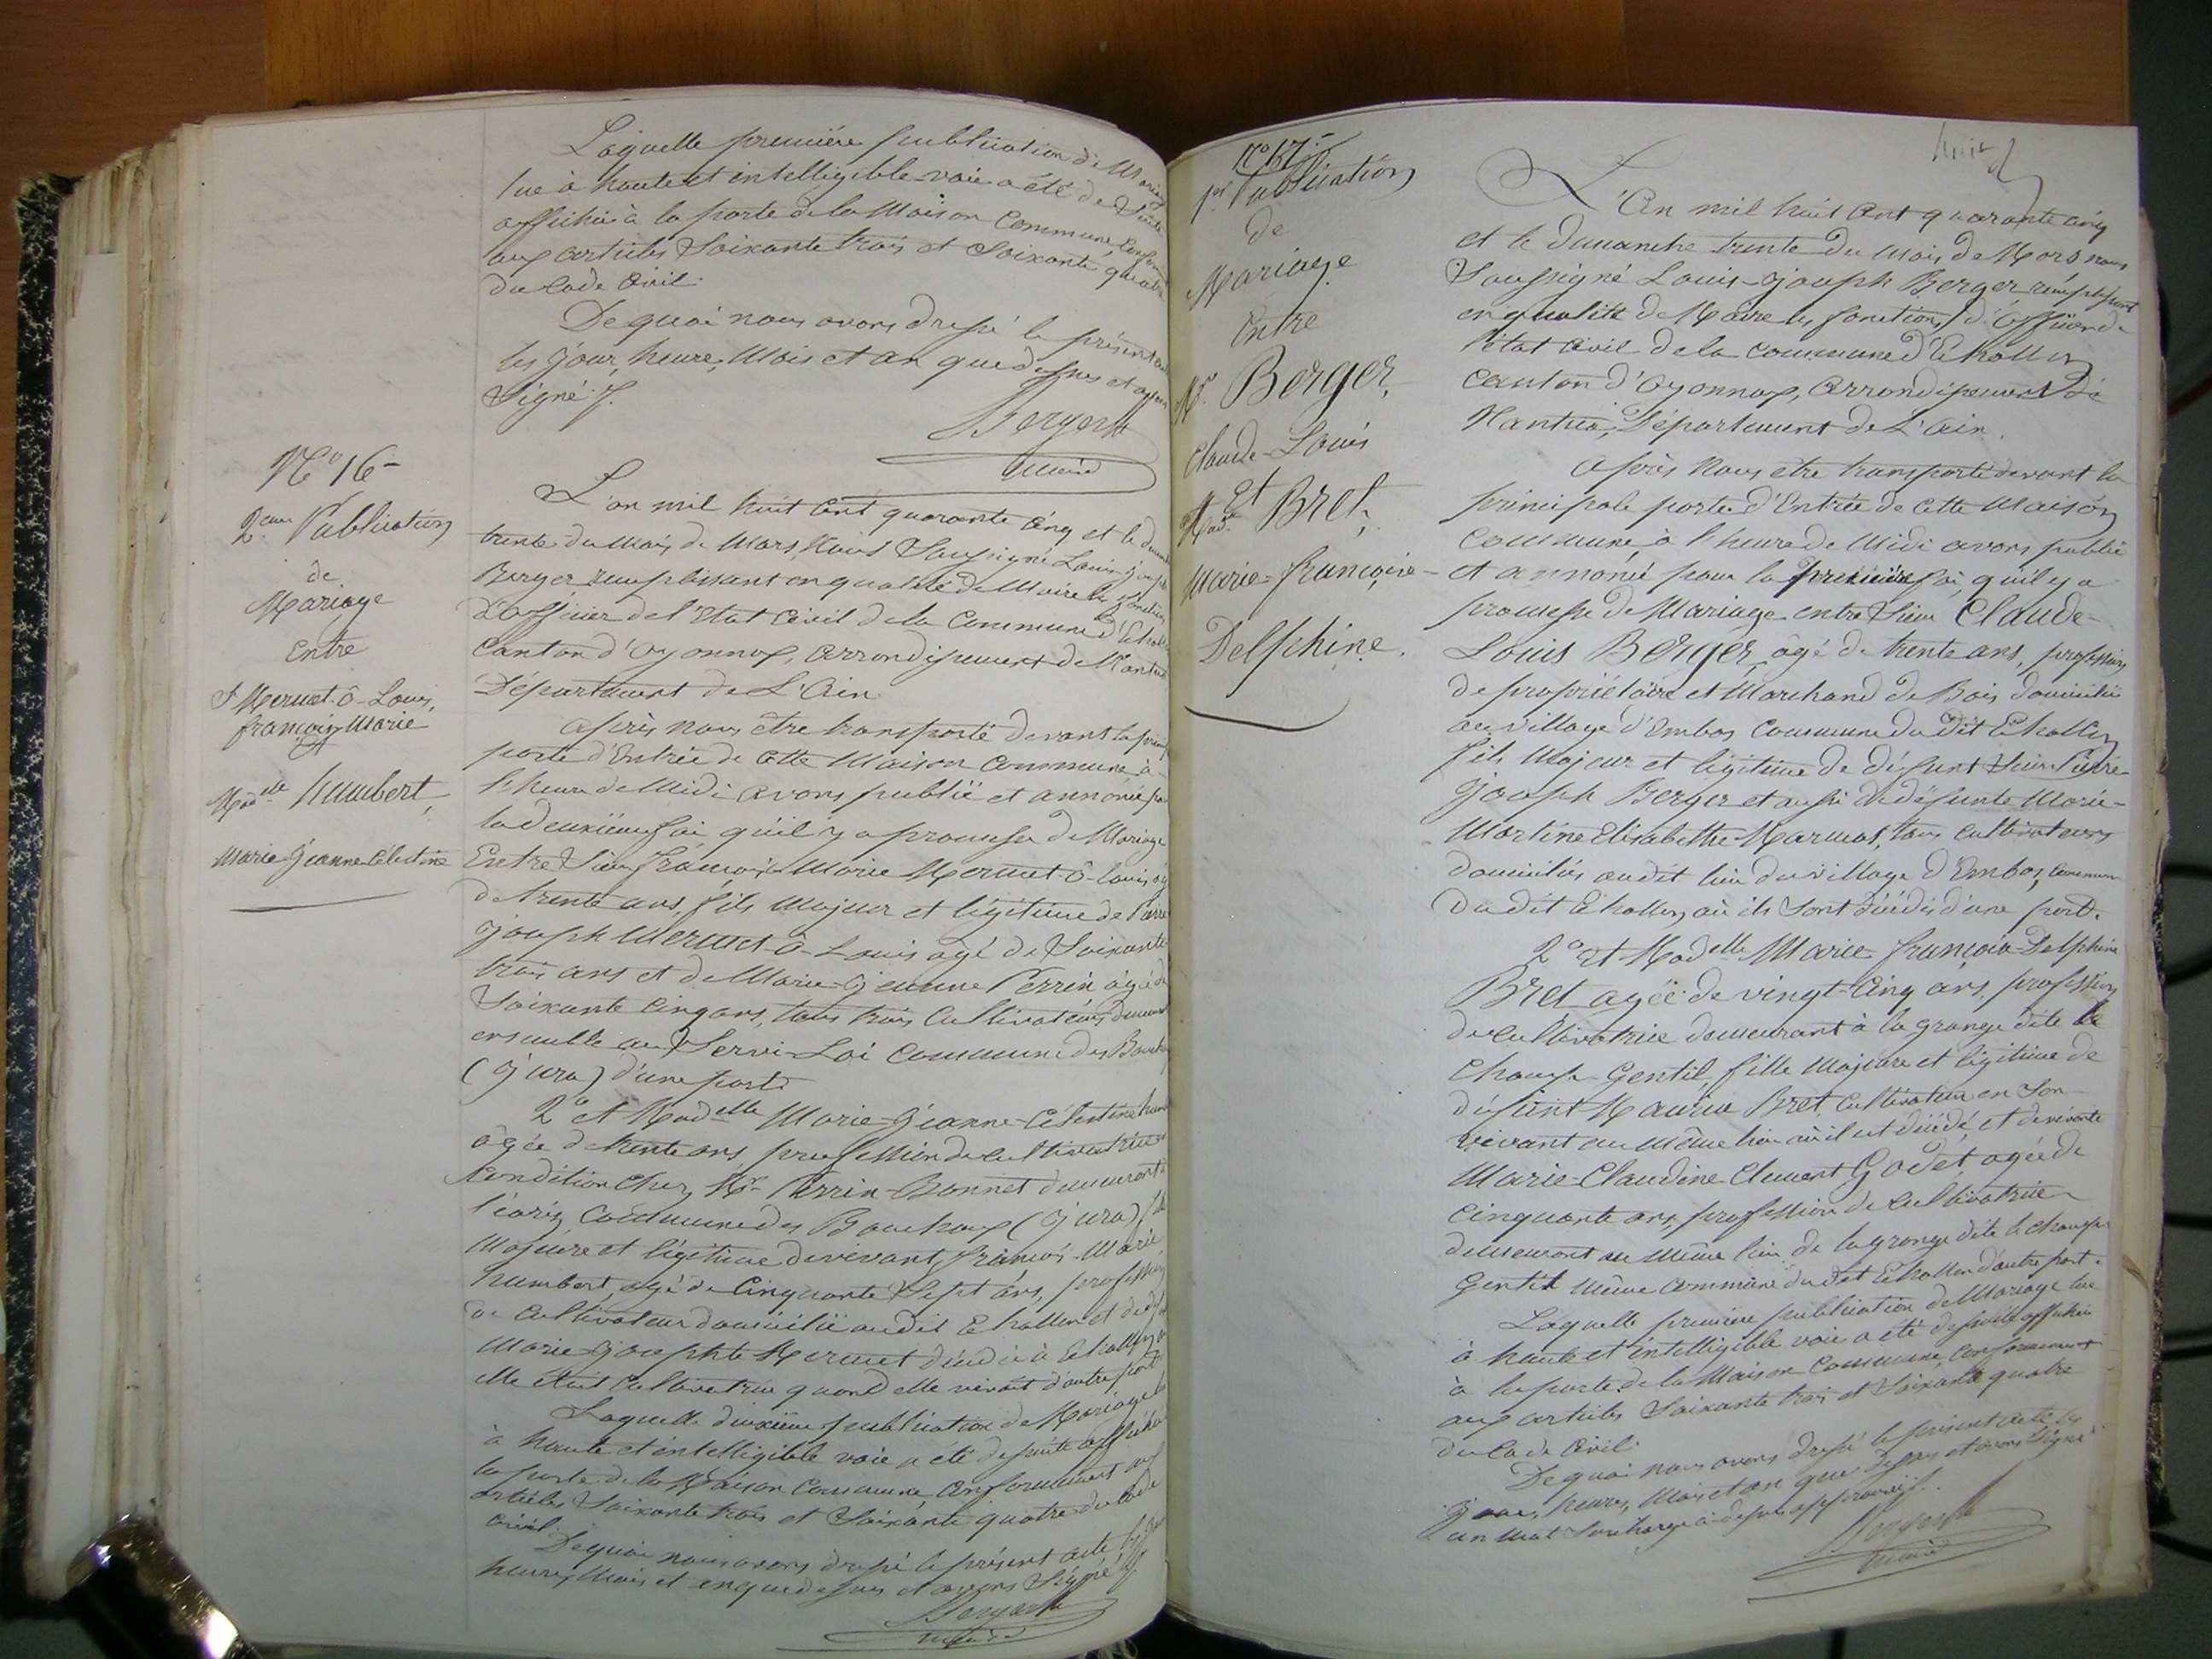 Laquelle première publication de Mariage
lue à haute et intelligible voix a été de suite
affichée à la porte de la Maison Commune,
aux articles Soixante trois et Soixante quatre
du Code Civil.
De quoi nous avons dressé le présent
les jour, heure, Mois et an que dessus et avons
Signé.
Berger
maire
N° 16
2eme Publication
de
Mariage
Entre
Mermet-ô-Louis,
françois Marie
Madelle humbert,
Marie Jeanne Célestine
L'an mil huit Cent quarante Cinq et le
trente du Mois de Mars, Nous Soussigné Louis Joseph
Berger remplissant en qualité de Maire les fonctions
d'officier de l'Etat Civil de la Commune d'Echallon
Canton d'Oyonnax, arrondissement de Nantua
Département de L'Ain
après nous être transporté devant la
porte d'Entrée de Cette Maison Commune, à
l'heure de Midi avons publié et annoncé pour
la deuxième foi qu'il y a promesse de Mariage
Entre Sieur françois Marie Mermet-ô-Louis
de trente ans, fils Majeur et légitime de Pierre
Joseph Mermet-ô-Louis agé de Soixante
trois ans et de Marie-Jeanne Perrin âgée de
Soixante Cinq ans, tous trois Cultivateurs
ensemble au Commune des
(Jura) d'une part.
2° et Madelle Marie-Jeanne-Célestine
âgée de trente ans profession de cultivatrice
Condition Chez Mr Perrin-Bonnet demeurant
Commune des Bouchoux (Jura)
Majeure et légitime de vivant françois-Marie
humbert, agé de Cinquante Sept ans, profession
de Cultivateur domicilié audit Echallon et de
Marie-Josephte Mermet décédée à Echallon
elle était Cultivatrice quand elle vivait d'autre part
Laquelle deuxième publication de Mariage
à haute et intelligible voix a été de suite affichée
la porte de la Maison Commune, Conformément aux
articles Soixante trois et Soixante quatre du Code
Civil.
De quoi nous avons dressé le présent acte les
heures, Mois et an que dessus et avons Signé
Berger
maire
N° 17
1re Publication
de
Mariage
Entre
Mr. Berger,
Claude-Louis
Et
Bret,
Marie-françoise-
Delphine.
L'An mil huit Cent quarante cinq
et le dimanche trente du Mois de Mars nous
Soussigné Louis-Joseph Berger remplissant
en qualité de Maire les fonctions d'officier de
l'état Civil de la Commune d'Echallon
Canton d'Oyonnax, Arrondissement de
Nantua, Département de L'Ain.
après Nous être transporté devant la
principale porte d'Entrée de Cette Maison
Commune, à l'heure de Midi avons publié
et annoncé pour la première foi, qu'il y a
promesse de Mariage entre Sieur Claude-
Louis Berger, agé de trente ans, profession
de propriétaire et Marchand de Bois domicilié
au village d'Embos Commune du dit Echallon
fils Majeur et légitime de défunt Sieur Pierre-
Joseph Berger et aussi de défunte Marie-
Martine Elisabethe Marmet, tous Cultivateurs
domiciliés audit lieu du village d'Embos, Commune
Du dit Echallon, où ils sont décédés d'une part.
2° et Madelle Marie-françoise-Delphine
Bret agée de vingt-Cinq ans, profession
de cultivatrice demeurant à la grange dite le
Champ-Gentil, fille Majeure et légitime de
défunt Maurice Bret, Cultivateur en Son
vivant au même lieu où il est décédé, et de vivante
Marie-Claudine Clement Godet, agée de
Cinquante ans, profession de Cultivatrice
demeurant au même lieu de la grange dite le Champ-
Gentil même Commune du dit Echallon d'autre part.
Laquelle première publication de Mariage lue
à haute et intelligible voix a été de suite affichée
à la porte de la Maison Commune, Conformément
aux articles Soixante trois et Soixante quatre
du Code Civil.
De quoi nous avons dressé le présent acte les
jour, heures, Mois et an que dessus et avons Signé
un mot surchargé ci-dessus approuvé.
Berger
maire